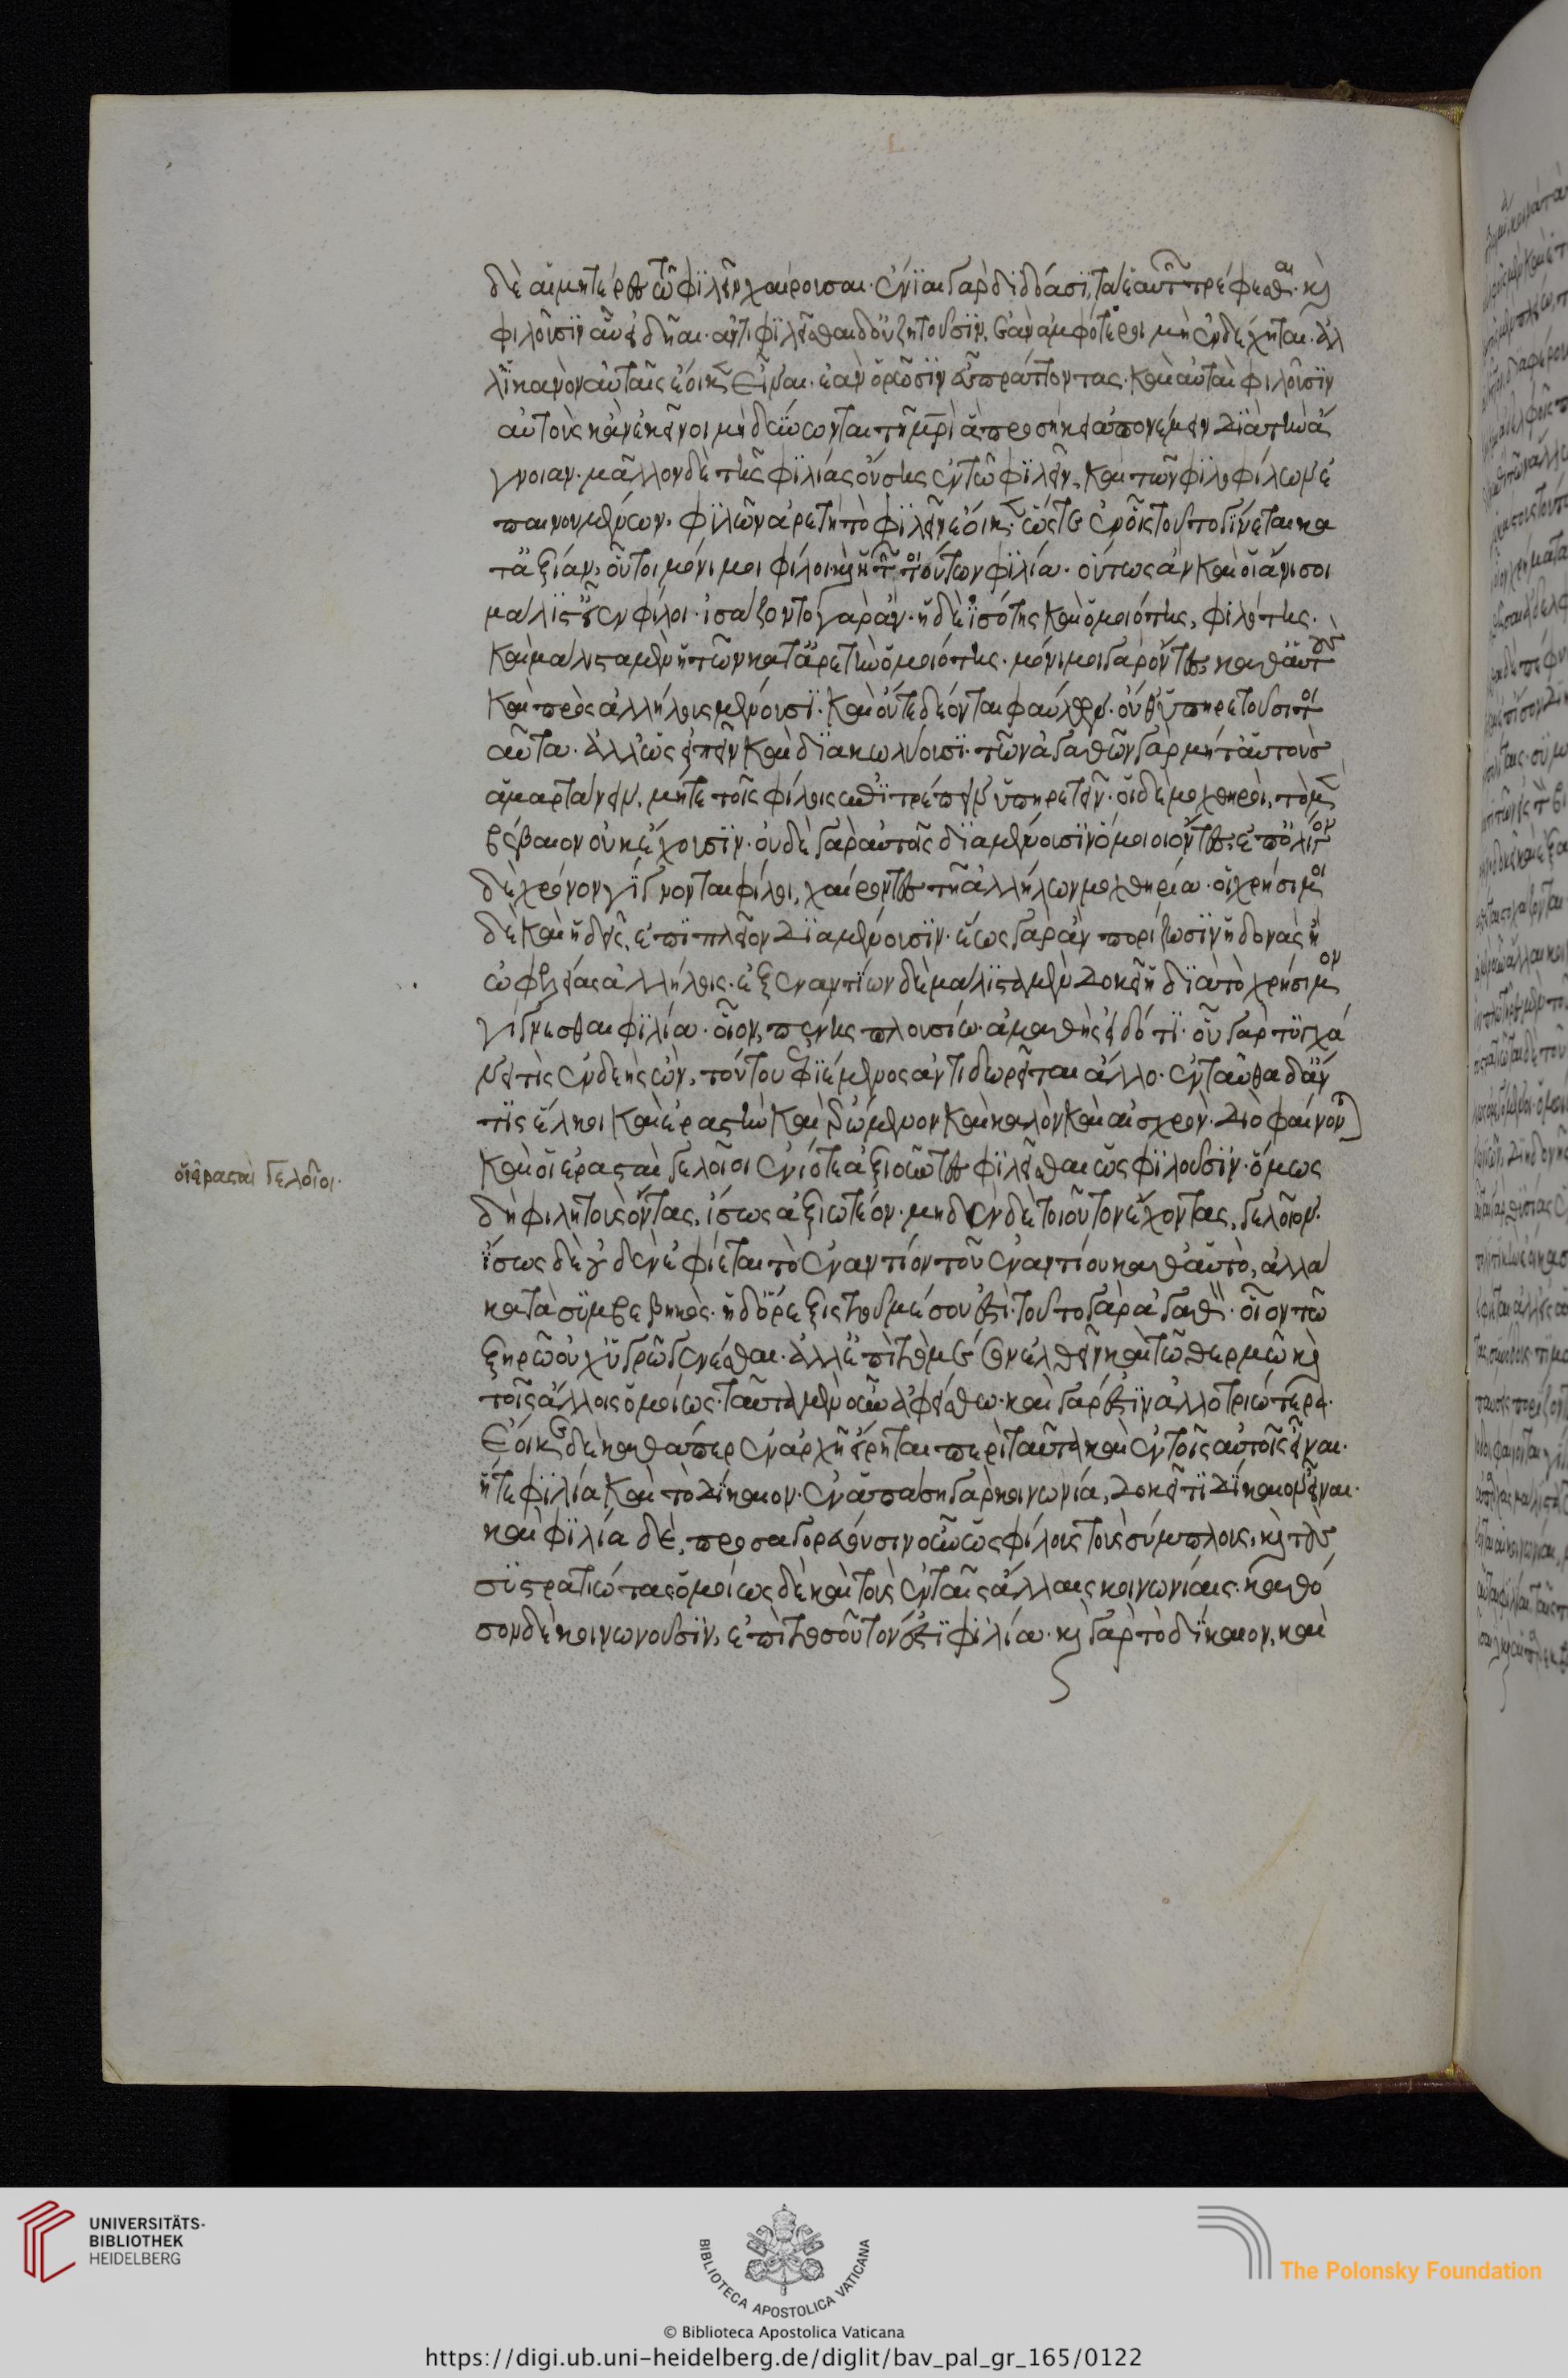 δὲ αἱ μητέρες τῶ φιλεῖν χαίρουσαι· ἔνιαι γὰρ διδόασι, τὰ ἑαυτῶν τρέφεσθαι· καὶ
φιλοῦσιν αὖ εἰδῆαι· ἀντιφιλεῖσθαι δ' οὐ ζητοῦσιν, ἐὰν ἀμφότεροι μὴ ἐνδέχηται· ἀλ
λ' ἱκανὸν αὐταῖς ἔοικεν εἶναι· ἐὰν ὁρῶσιν εὖ πράττοντας· καὶ αὐταὶ φιλοῦσιν
αὐτοὺς κἂν ἐκεῖνοι μηδὲν ὧν ται τῆ μητρὶ ἃ προσήκει ἀπονέμειν διὰ τὴν ἄ
γνοιαν· μᾶλλον δὲ τῆς φιλίας οὔσης ἐν τῶ φιλεῖν, καὶ τῶν φιλοφίλων ἐ
παινουμένων· φίλων ἀρετὴ τὸ φιλεῖν ἔοικεν· ὥστε ἐν οἷς τοῦτο γίνεται κα
τ' ἀξίαν, οὗτοι μόνιμοι φίλοι καὶ ἡ τούτων φιλία· οὕτως ἂν καὶ οἱ ἄνισοι
μάλιστ' εἶεν φίλοι· ἰσάζοιντο γὰρ ἄν· ἡ δὲ ἰσότης καὶ ὁμοιότης, φιλότης·
καὶ μάλιστα μὲν ἡ τῶν κατ' ἀρετὴν ὁμοιότης· μόνιμοι γὰρ ὄντες καθ' αὑτοὺς
καὶ πρὸς ἀλλήλους μένουσι· καὶ οὔτε δέονται φαύλων· οὔθ' ὑπηρετοῦσι τοι
αῦτα· ἀλλ' ὡς εἰπεῖν καὶ διακωλύουσι· τῶν ἀγαθῶν γὰρ μήτ' αὐτοὺς
ἁμαρτάνειν, μήτε τοῖς φίλοις ἐπιτρέπειν ὑπηρετεῖν· οἱ δὲ μοχθηροὶ, τὸ μὲν
βέβαιον οὐκ ἔχουσιν· οὐδὲ γὰρ αὐτοῖς διαμένουσιν ὅμοιοι ὄντες· ἐπ' ὀλίγον
δὲ χρόνον γίγνονται φίλοι, χαίροντες τῆ ἀλλήλων μοχθηρία· οἱ χρήσιμοι
δὲ καὶ ἡδεῖς, ἐπὶ πλεῖον διαμένουσιν· ἕως γὰρ ἂν πορίζωσιν ἡδονὰς ἢ
ὠφελείας ἀλλήλοις· ἐξ ἐναντίων δὲ μάλιστα μὲν δοκεῖ ἡ διὰ τὸ χρήσιμον
γίγνεσθαι φιλία· οἷον, πένης πλουσίω· ἀμαθὴς εἰδότι· οὗ γὰρ τυγχά
νει τὶς ἐνδεὴς ὢν, τούτου ἐφιέμενος ἀντιδωρεῖται ἄλλο· ἐνταῦθα δ' ἄν
τις ἕλκοι καὶ ἐραστὴν καὶ ἐρώμενον καὶ καλὸν καὶ αἰσχρόν· διὸ φαίνονται
καὶ οἱ ἐρασταὶ γελοῖοι ἐνίοτε ἀξιοῦντες φιλεῖσθαι ὡς φιλοῦσιν· ὁμως
δὴ φιλητοὺς ὄντας, ἴσως ἀξιωτέον· μηδὲν δὲ τοιοῦτον ἔχοντας, γελοῖον·
ἴσως δὲ οὐδὲν ἐφίεται τὸ ἐναντίον τοῦ ἐναντίου καθ' αὑτὸ, ἀλλὰ
κατὰ συμβεβηκὸς· ἡ δ' ὄρεξις τοῦ μέσου ἐστὶ· τοῦτο γὰρ ἀγαθόν· οἷον τῶ
ξηρῶ οὐχ ὑγρῶ γενέσθαι· ἀλλ' ἐπὶ τὸ μέσον ἐλθεῖν καὶ τῶ θερμῶ καὶ
τοῖς ἄλλοις ὁμοίως· ταῦτα μὲν οὖν ἀφείσθω· καὶ γάρ ἐστιν ἀλλοτριώτερα·
ἔοικε δὲ καθάπερ ἐν ἀρχῆ εἴρηται περὶ ταῦτα καὶ ἐν τοῖς αὐτοῖς εἶναι·
ἥ τε φιλία καὶ τὸ δίκαιον· ἐν ἁπάση γὰρ κοινωνία, δοκεῖ τι δίκαιον εἶναι·
καὶ φιλία δὲ, προσαγορεύουσιν οὖν ὡς φίλους τοὺς σύμπλους, καὶ τοὺς
συστρατιώτας ὁμοίως δὲ καὶ τοὺς ἐν ταῖς ἄλλαις κοινωνίαις· καθό
σον δὲ κοινωνοῦσιν, ἐπὶ τοσοῦτον ἐστι φιλία· καὶ γὰρ τὸ δίκαιον, καὶ
οἱ ἐρασταὶ γελοῖοι·
UNIVERSITÄTS-
BIBLIOTHEK
HEIDELBERG
BIBLIOTECA APOSTOLICA VATICANA
The Polonsky Foundation
© Biblioteca Apostolica Vaticana
https://digi.ub.uni-heidelberg.de/diglit/bav_pal_gr_165/0122